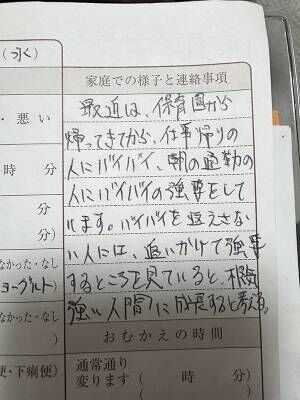 （水）
家庭での様子と連絡事項
・悪い
最近は、保育園から
帰ってきてから、仕事帰りの
人にバイバイ、朝の通勤の
人にバイバイの強要をして
います。バイバイを返えさな
い人には、追いかけて強要
するところを見ていると、根気
強い人間に成長すると考える。
時 分
分
分
なかった・なし
ヨーグルト）
なかった・なし
）
便・下痢便）
おむかえの時間
通常通り
変ります（ 時 分
（